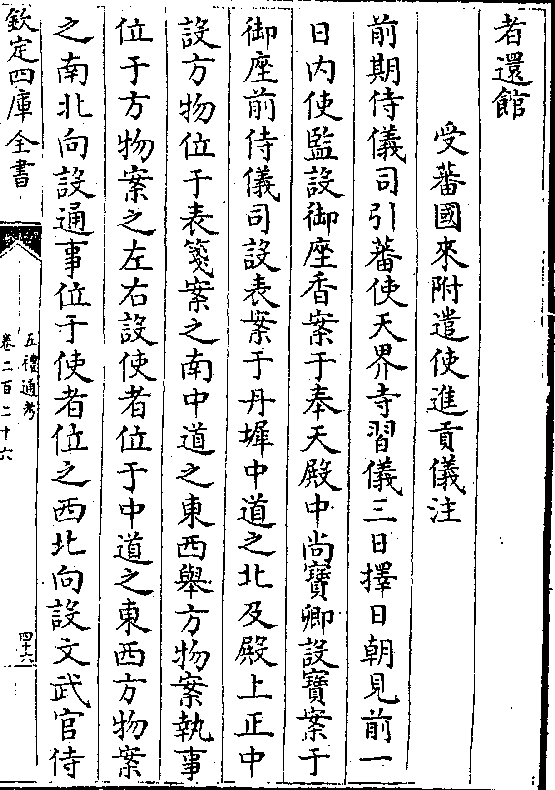 者還館
受蕃國來附遣使進貢儀注
前期侍儀司引蕃使天界寺習儀三日擇日朝見前一
日内使監設御座香案于奉天殿中尚寶卿設寶案于
御座前侍儀司設表案于丹墀中道之北及殿上正中
設方物位于表箋案之南中道之東西舉方物案執事
位于方物案之左右設使者位于中道之東西方物案
之南北向設通事位于使者位之西北向設文武官侍
欽定四庫全書
五禮通考
卷二百二十六
四十六